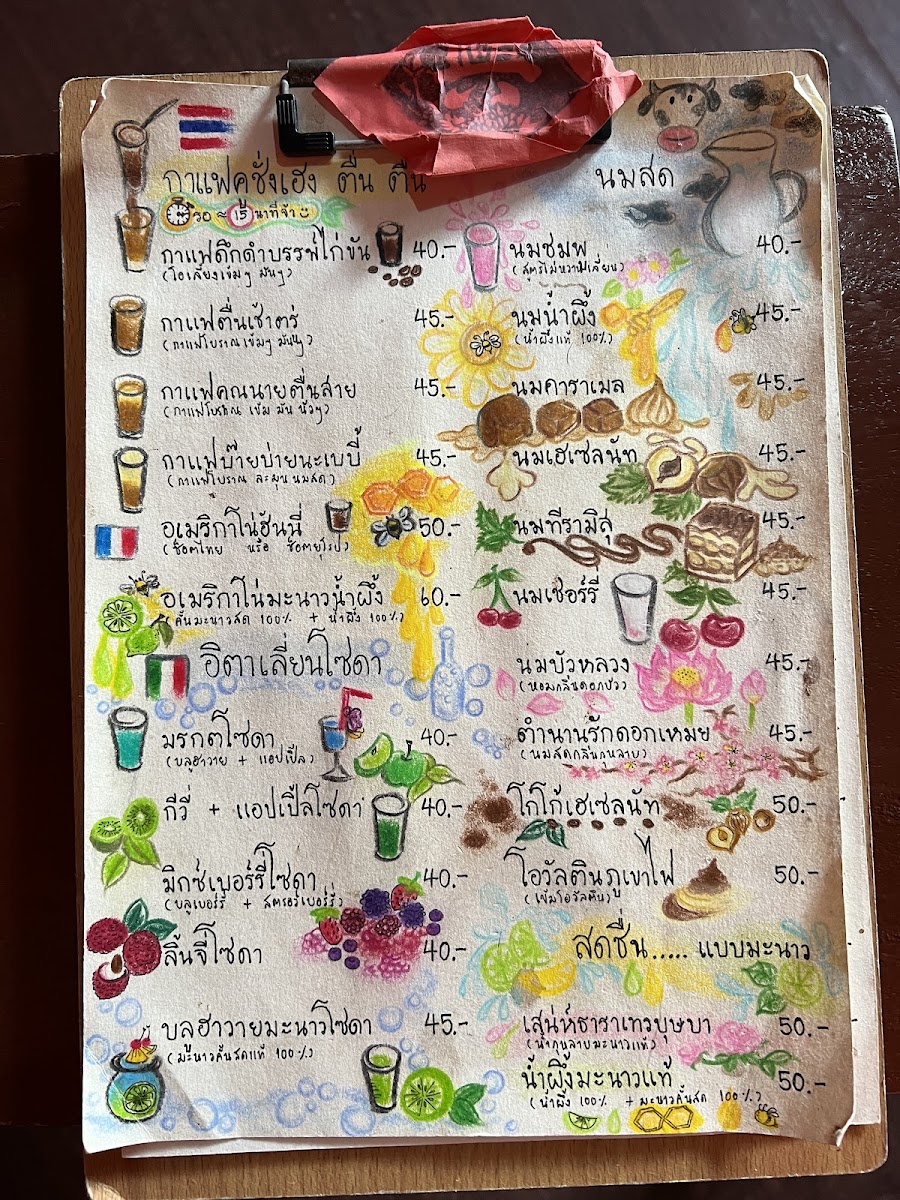 กาแฟคูชั่งเฮง ตื่น ตืน
รอ ≈ 15 นาทีจ้า
กาแฟดึกดำบรรพ์ไก่ขัน 40.-
(โอเลี้ยงเข้มๆ มันๆ)
กาแฟตื่นเช้าตรู่ 45.-
(กาแฟโบราณ เข้มๆ มันๆ)
กาแฟคุณนายตื่นสาย 45.-
(กาแฟโบราณ เข้ม มัน นัวๆ)
กาแฟบ๊ายบ่ายนะเบบี้ 45.-
(กาแฟโบราณ ละมุน นมสด)
อเมริกาโน่ฮันนี่ 50.-
(ช็อตไทย หรือ ช็อตยุโรป)
อเมริกาโน่มะนาวน้ำผึ้ง 60.-
คั้นมะนาวสด 100% + น้ำผึ้ง 100%)
อิตาเลี่ยนโซดา
มรกตโซดา 40.-
(บลูฮาวาย + แอปเปิ้ล)
กีวี่ + แอปเปิ้ลโซดา 40.-
มิกซ์เบอร์รี่โซดา 40.-
(บลูเบอร์รี่ + สตรอว์เบอร์รี่)
ลิ้นจี่โซดา 40.-
บลูฮาวายมะนาวโซดา 45.-
(มะนาวคั้นสดแท้ 100%)
นมสด
นมชมพู 40.-
(สูตรไม่หวานเลี่ยน)
นมน้ำผึ้ง 45.-
(น้ำผึ้งแท้ 100%)
นมคาราเมล 45.-
นมเฮเซลนัท 45.-
นมทีรามิสุ 45.-
นมเชอร์รี่ 45.-
นมบัวหลวง 45.-
(หอมกลิ่นดอกบัว)
ตำนานรักดอกเหมย 45.-
(นมสดกลิ่นกุหลาบ)
โกโก้เฮเซลนัท 50.-
โอวัลตินภูเขาไฟ 50.-
(เข้มโอวัลติน)
สดชื่น..... แบบมะนาว
เสน่ห์ธาราเทวบุษบา 50.-
(น้ำกุหลาบมะนาวแท้)
น้ำผึ้งมะนาวแท้ 50.-
(น้ำผึ้ง 100% + มะนาวคั้นสด 100%)